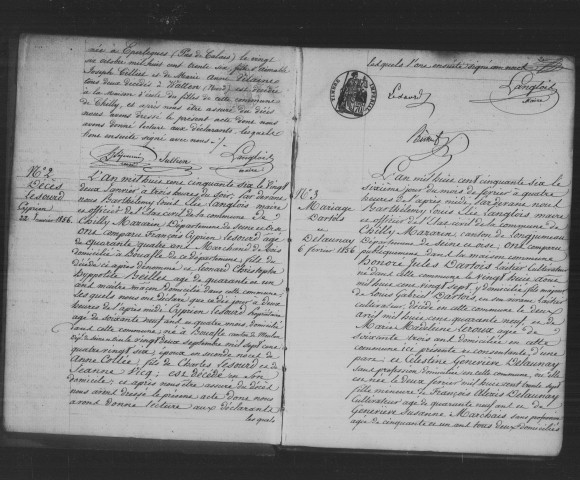 née à Eperlecques (Pas de Calais) le vingt
Joseph Collart et de Marie Anne Delaines
tous deux décédés à Watten (Nord), est décédée
à la Maison d'école des filles de cette commune
de Chilly, et après nous être assuré du décès
nous avons dressé le présent acte dont nous
avons donné lecture aux déclarants, lesquels
l'ont ensuite signé avec nous
Langlois
maire
N° 2
Décès
Lesourd
Cyprien
22 Janvier 1856
L'An mil huit cent cinquante six le vingt
deux Janvier à trois heures du soir, par devant
nous Barthélemy Louis Elie Langlois maire
et officier de l'Etat civil de la commune de
Chilly Mazarin, Département de Seine et Oise
ont comparu François Cyprien Lesourd âgé
de quarante quatre ans Marchand de bois
domicilié à Bouafle de ce département, fils du
décédé ci après dénommé et Léonard Christophe
hyppolite âgé de quarante et un
ans maître maçon domicilié dans cette commune.
Lesquels nous ont déclaré que ce dit jour à deux
heures de l'après midi Cyprien Lesourd
âgé de soixante neuf ans et quatre mois domicilié
dans cette commune, né à Bouafle canton de Meulan
le vingt deux septembre mil sept cent
quatre vingt six, époux en seconde noces de
Anne Collée, fils de Charles Lesourd et de
Jeanne Vicq, est décédé en son
domicile; et après nous être assuré du décès
nous avons dressé le présent acte dont nous
avons donné lecture aux déclarants
lesquels
lesquels l'ont ensuite signé avec nous
TIMBRE IMPERIAL
Lesourd
Langlois
Maire
N° 3
Mariage
Dartois
et
Delaunay
6 février 1856
L'An mil huit cent cinquante six le
sixième jour du mois de février à quatre
heures de l'après midi par devant nous
Barthélemy Louis Elie Langlois maire
et officier de l'Etat civil de la commune de
Chilly Mazarin canton de Longjumeau
Département de Seine et Oise, ont comparu
publiquement dans la maison commune
Honoré Jules Dartois
né dans cette commune le vingt huit août
mil huit cent vingt sept, y domicilié fils majeur
de Louis Gabriel Dartois en son vivant
cultivateur, décédé en cette commune le deux
avril mil huit cent quarante neuf et de
Marie Madeleine Leroux âgée de
soixante trois ans domiciliée en cette
commune ici présente et consentante d'une
part; et Célestine Geneviève Delaunay
sans profession domiciliée en cette commune, où elle
est née le deux février mil huit cent trente sept
fille mineure de François Alexis Delaunay
cultivateur âgé de quarante neuf ans et de
Geneviève Susanne Marchais sans profession
âgée de cinquante et un ans tous deux domiciliés